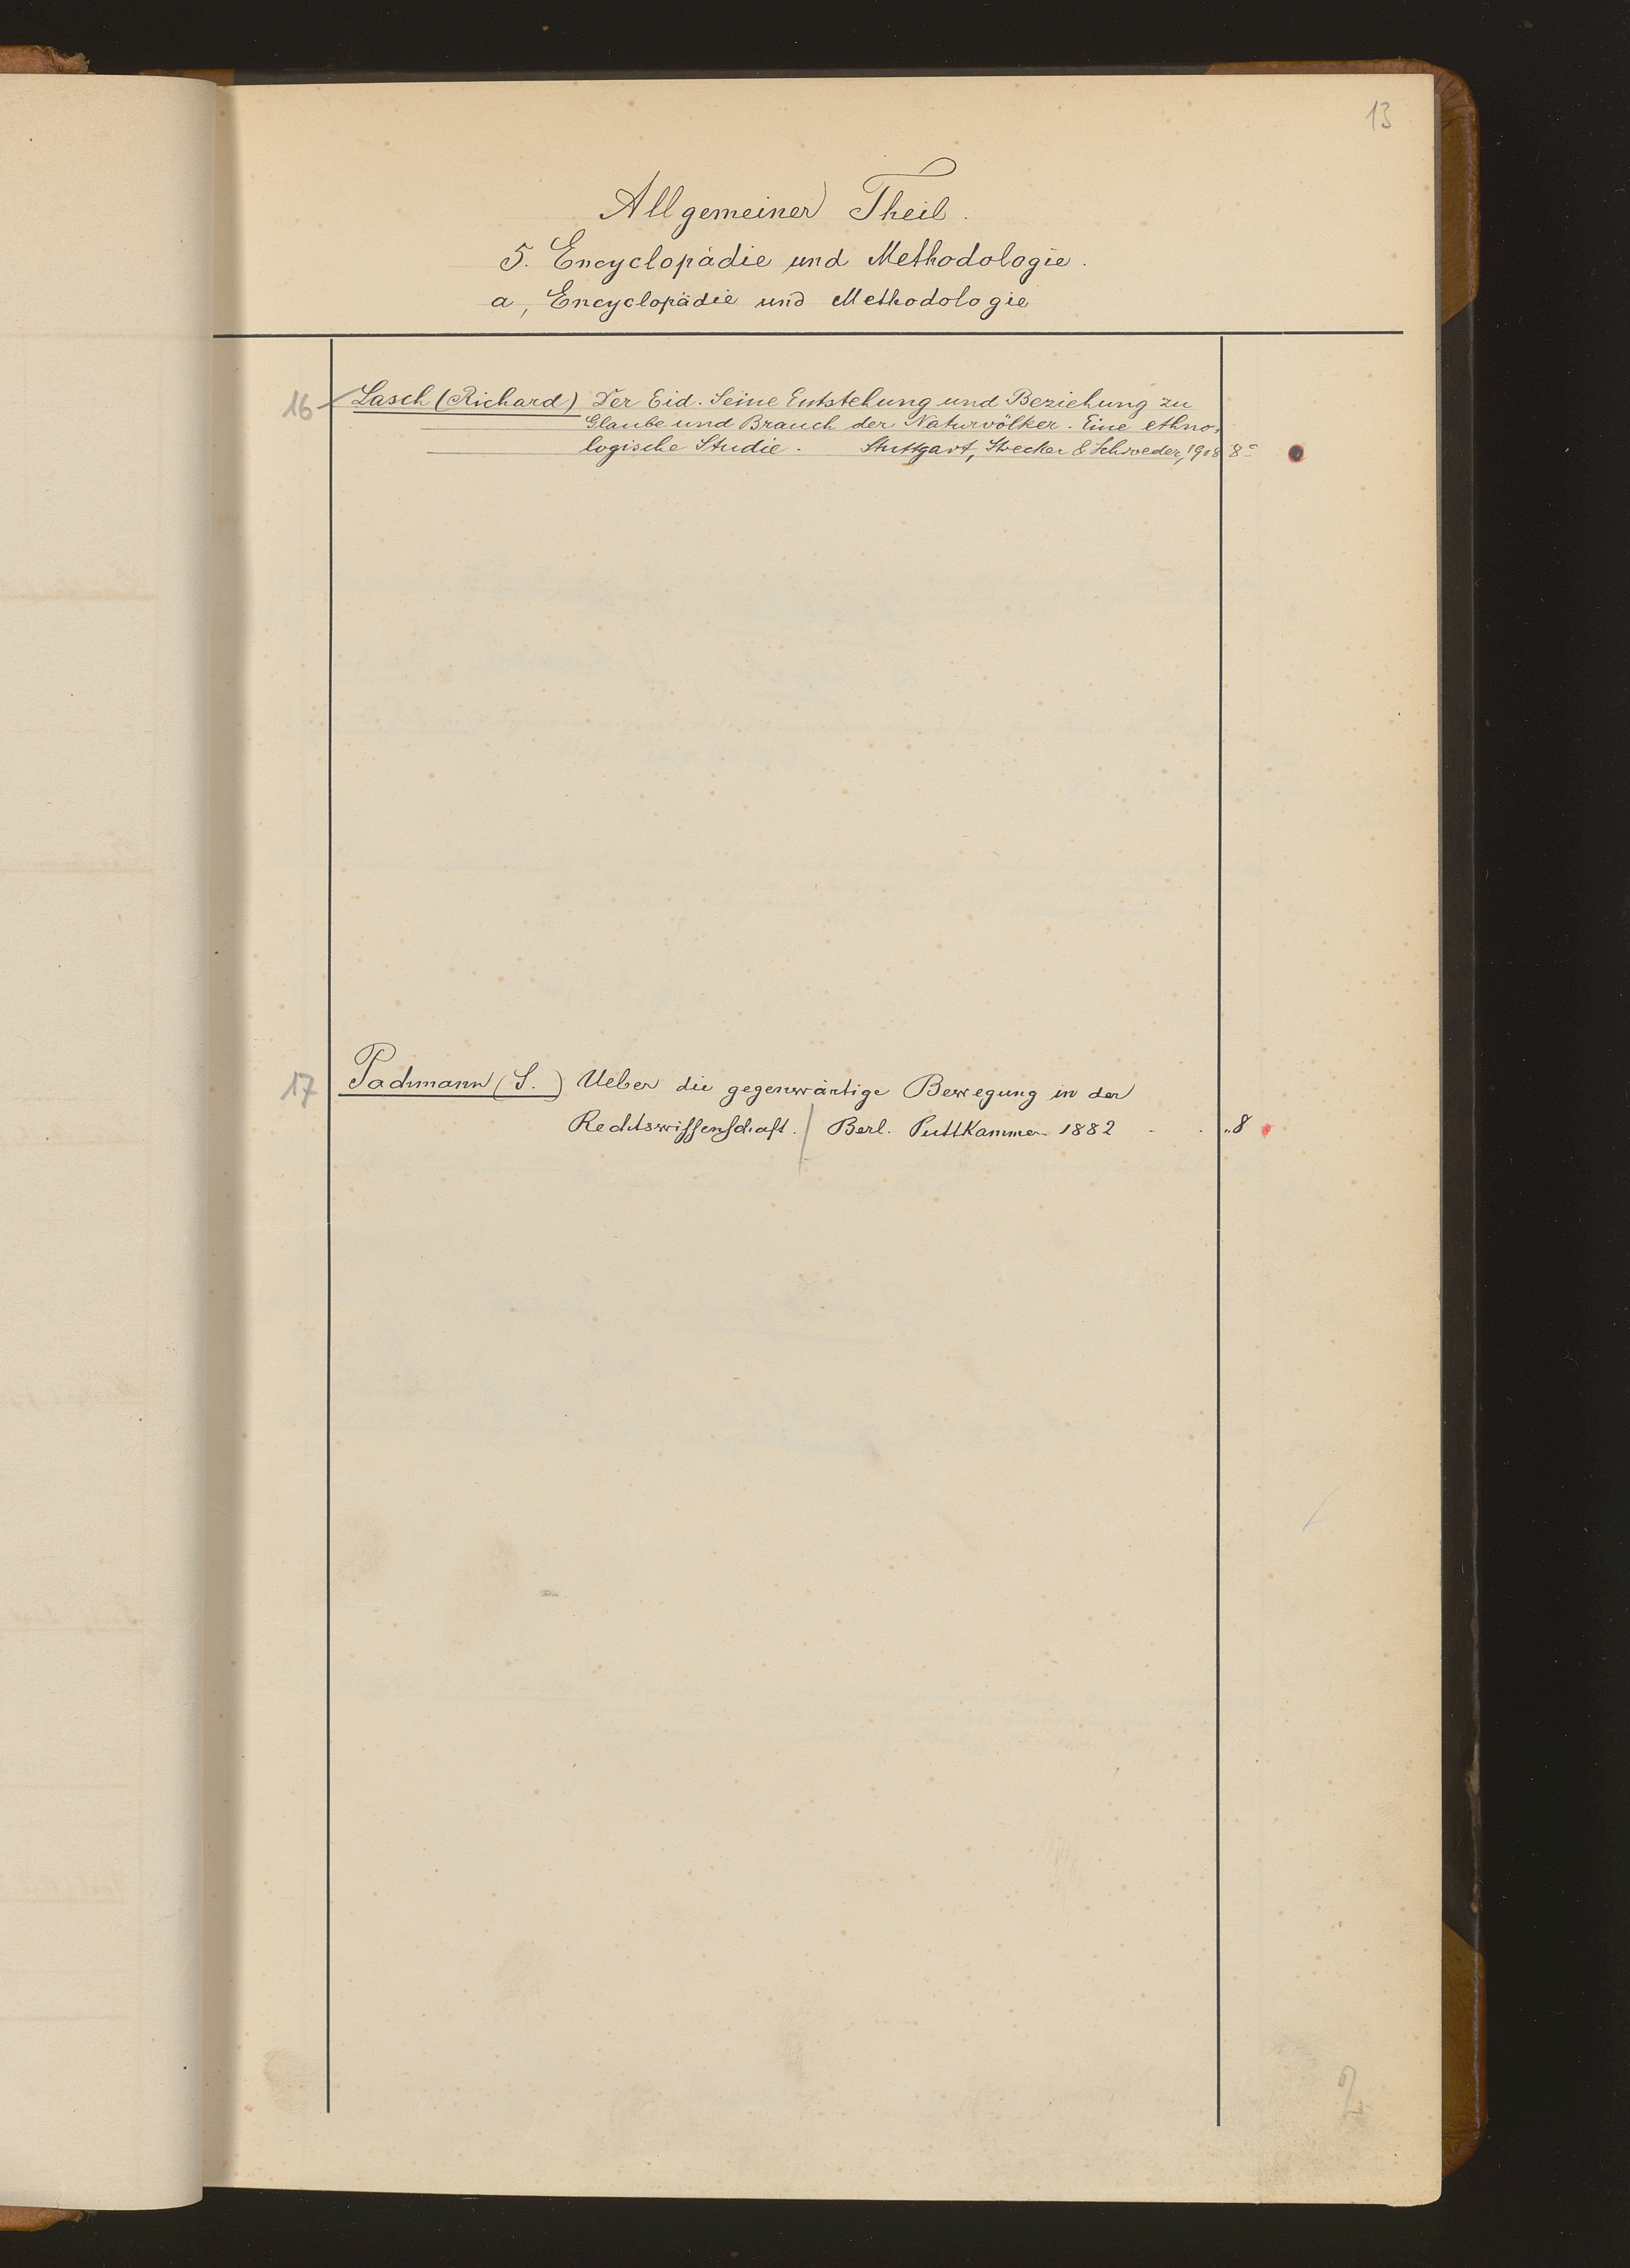 13
Allgemeiner Theil.
5. Encyclopädie und Methodologie.
a, Encyclopädie und Methodologie
16 Lasch (Richard) Der Eid. Seine Entstehung und Beziehung zu
Glaube und Brauch der Naturvölker. Eine ethno-
logische Studie. Stuttgart, Strecker & Schroeder, 1908 8°
17 Pachmann (S.) Ueber die gegenwärtige Bewegung in der
Rechtswissenschaft. / Berl. Puttkammer 1882 - - „8
2